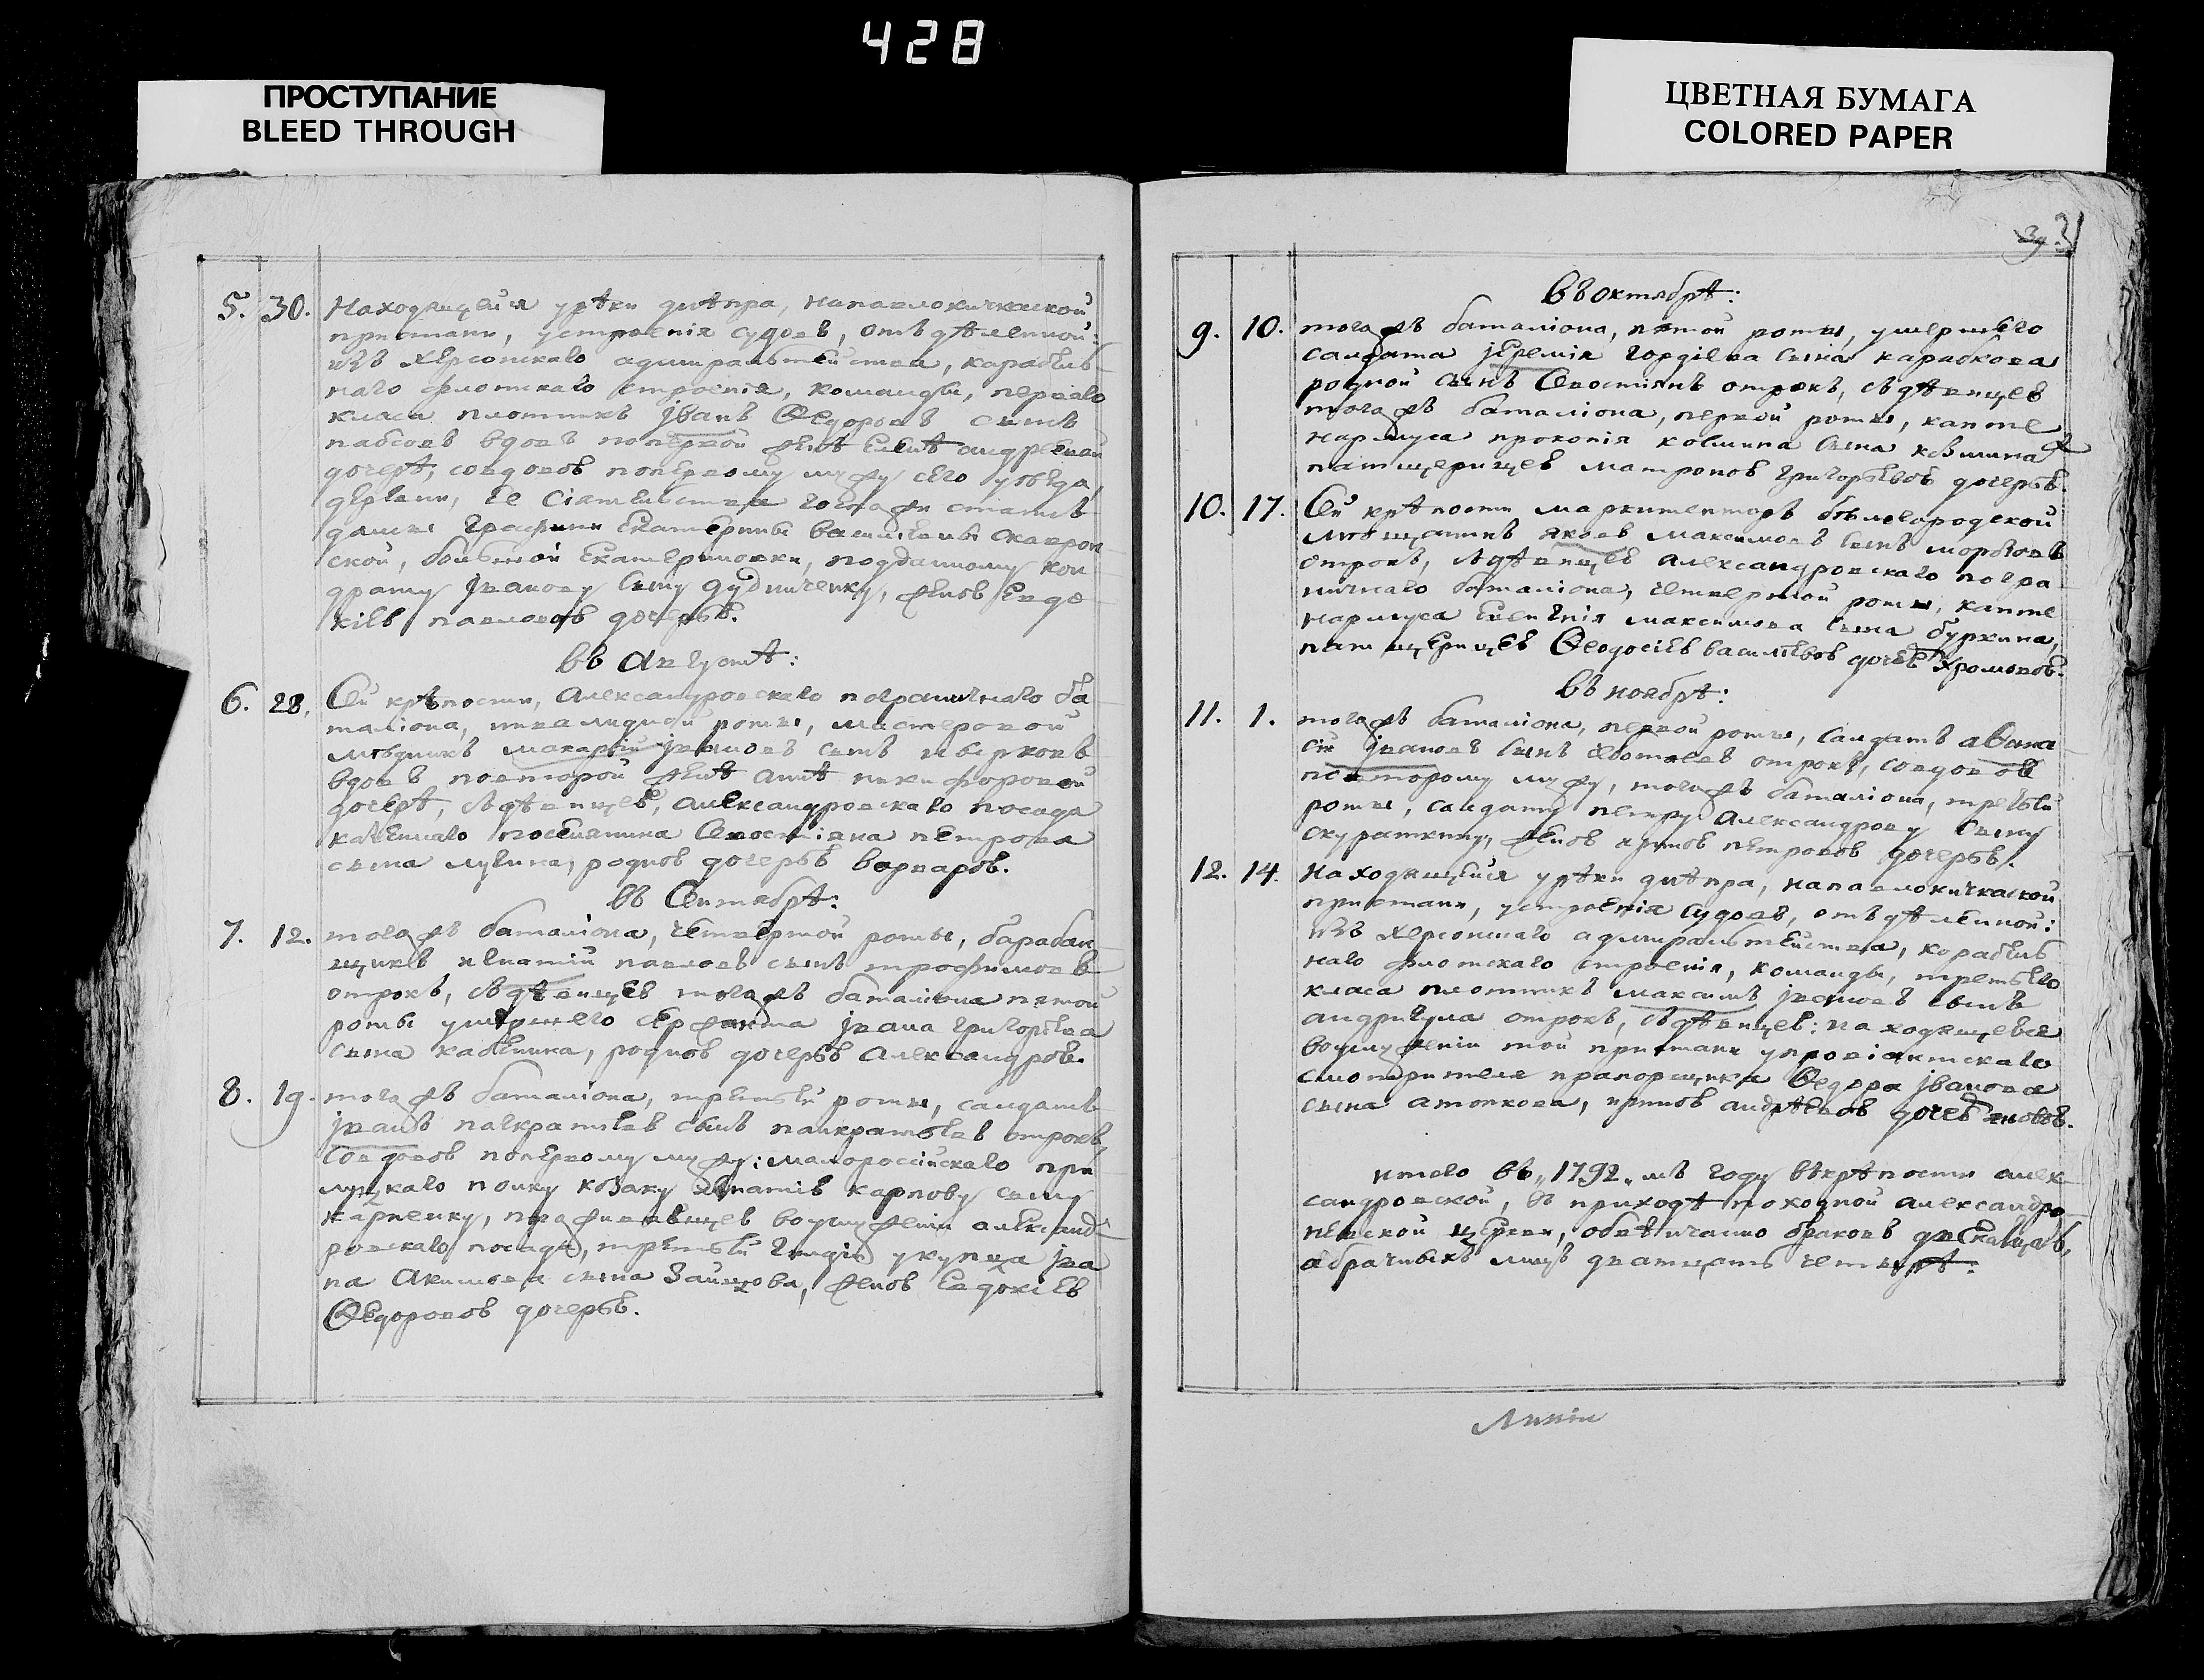 428
ПРОСТУПАНИЕ
BLEED THROUGH
ЦВЕТНАЯ БУМАГА
COLORED PAPER
5. 30. Находящейся урѣки днѣпра, напавлокичкаской
пристани, устроенія судовъ, отъ дѣленной:
изъ Херсонскаго адмиральтейства, карабель
наго флотскаго строенія, команды, перваго
класа плотникъ іванъ Ѳедоровъ сынъ
вдовъ поперкой женѣ Еленѣ андреевой
дочерѣ, совдовою попервому мужу сего уезда,
державы, Ее Сіятельства госпажи статсъ
дамы Графини Екатерины василевны скаврон
ской, большой Екатериновки, подданному кон
драту Іванову сыну дудниченку, женою Евдо
кіею павловою дочерью.
въ Августѣ:
6. 28. Сей крѣпости, Александровскаго пограничнаго ба
таліона, инвалидной роты, мастеровой
мѣдникъ макарій івановъ сынъ
вдовъ повторой женѣ аннѣ никифоровой
дочерѣ, здѣвицею, александровскаго посада
казеннаго поселянина Севостіяна петрова
сына лукина, родною дочерью варварою.
въ Сентябрѣ:
7. 12. тогожъ баталіона, четвертой роты, барабан
щикъ игнатій павловъ сынъ трофимовъ
отрокъ, здѣвицею тогожъ баталіона пятой
роты умершего сержанта івана григорьева
сына калинина, родною дочерью александрою.
8. 19. тогожъ баталіона, третьей роты, салдатъ
іванъ панкратьевъ сынъ панкратьевъ отрокъ,
совдовою попервому мужу: малороссійскаго при
луцкаго полку козаку игнатію карпову сыну
карпенку, проживающею воуслуженіи александ
ровскаго посада, третьей гилдіи укупца іва
на Акимова сына Зайцова, женою Евдокіею
Ѳедоровою дочерью.
31
въ октябрѣ:
9. 10. тогожъ баталіона, пятой роты, умершего
салдата іеремія гордіева сына
родной сынъ Севостіянъ отрокъ, здѣвицею
тогожъ баталіона, первой роты, капте
нармуса прокопія козмина сына козмина
патщерицею матроною григорьевою дочерью.
10. 17. Сей крѣпости маркитенторъ бѣлогородской
мѣщанинъ яковъ максимовъ сынъ морозовъ
отрокъ, здѣвицею александровскаго погра
ничнаго баталіона, четвертой роты, капте
нармуса Евгенія максимова сына буркина,
патщерицею Ѳеодосіею васильевою дочерью хромовою.
въ ноябрѣ:
11. 1. тогожъ баталіона, первой роты, салдатъ аѳана
сій івановъ сынъ отрокъ, совдовою
повторому мужу, тогожъ баталіона, третьей
роты, салдату петру Александрову сыну
скураткину, женою ириною петровою дочерью.
12. 14. Находящейся урѣки днѣпра, напавлокичкаской
пристани, устроенія судовъ, отъ дѣленной:
изъ Херсонскаго адмиральтейства, корабель
наго флотскаго строенія, команды, третьего
класа плотникъ максимъ івановъ сынъ
андригула отрокъ, здѣвицею: находящеюся
воуслуженіи той пристани упровіянтскаго
смотрителя прапорщика Ѳедора іванова
сына атопкова, ириною андрѣевою дочерью
итого въ „1792„ мъ году въкрѣпости алек
сандровской, въ приходѣ походной александро
невской церкви, обвѣнчанно браковъ двенатцать,
абрачныхъ лицъ дватцать четыре.